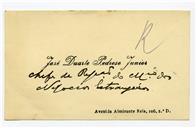 R
José Duarte Pedroso Junior
chefe de Repart. do Mº dos
Negocios Estrangeiros
Avenida Almirante Reis, 106, 2.º D.